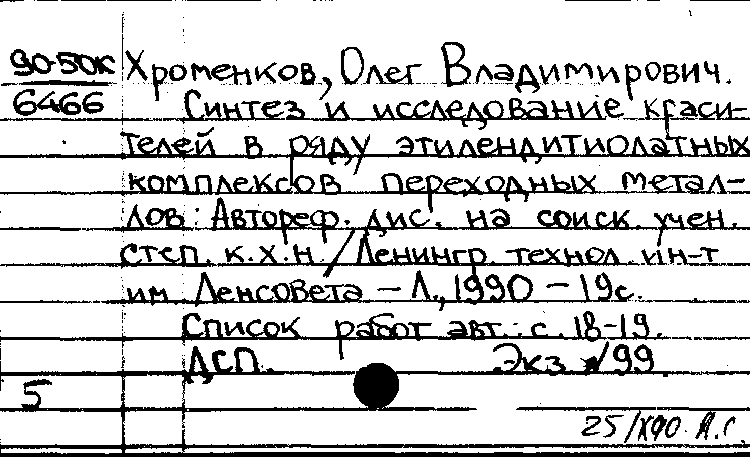 90-50К Хроменков, Олег Владимирович.
6466 Синтез и исследование краси-
телей в ряду этилендитиолатных
комплексов переходных метал-
лов: Автореф. дис. на соиск. учен.
степ. к.х.н. / Ленингр. технол. ин-т
им Ленсовета – Л., 1990 – 19с.
Список работ авт.: с. 18-19.
ДСП. Экз №99.
5
25/X90 А.С.